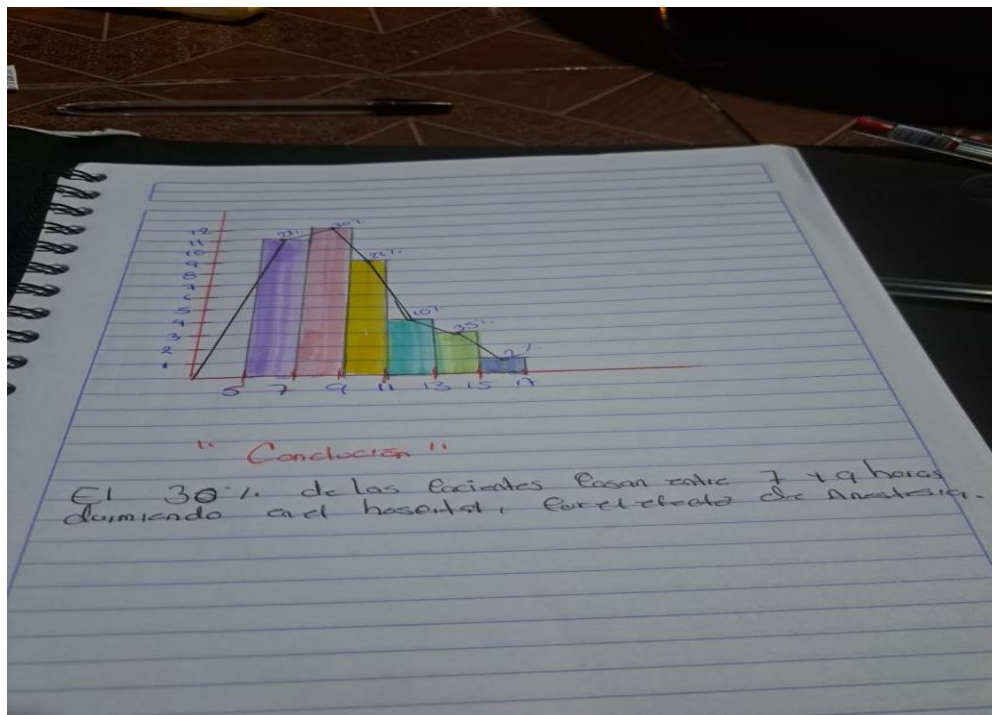 12
11
10
9
8
7
6
5
4
3
2
30%
10%
35%
2%
5 7 9 11 13 15 17
" Conclución "
El 30% de los Pacientes Pasan entre 7 y 9 horas
durmiendo en el hospital, Por el efecto de Anestesia.